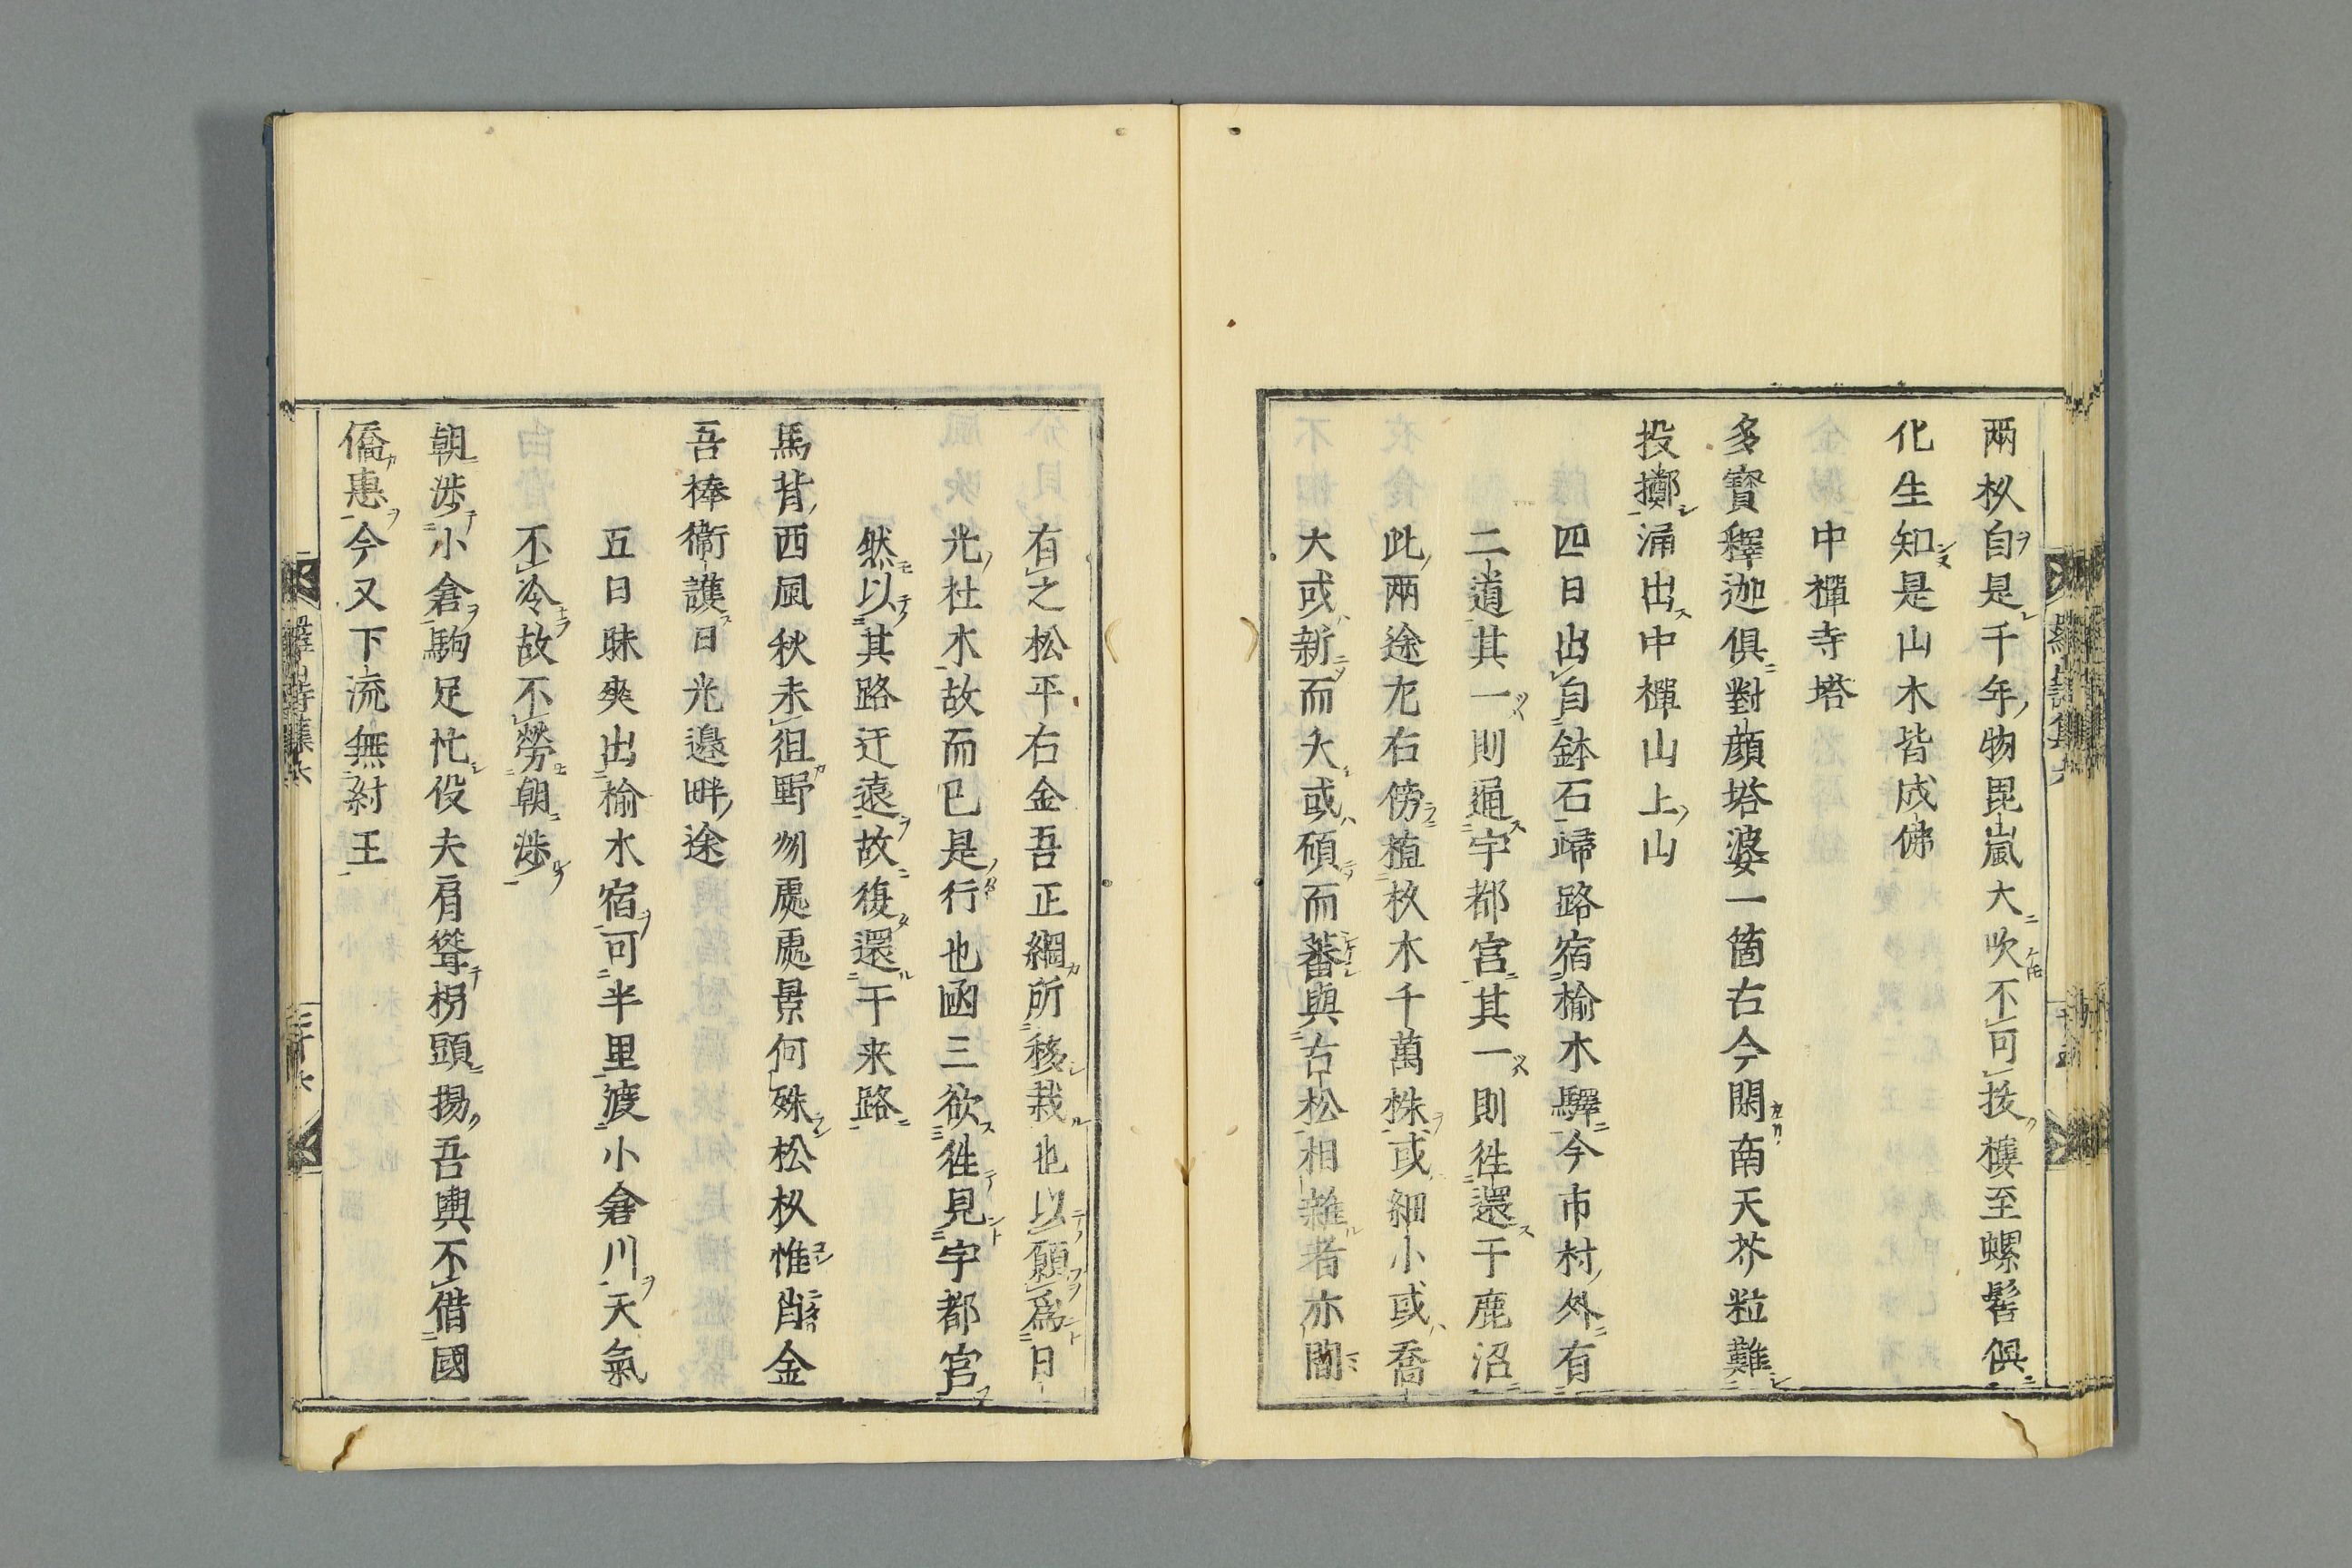 兩杦自是千年物毘嵐大吹不可拔樓至螺髻俱
化生知是山木皆成佛
中禪寺塔
多寶釋迦俱對顔塔婆一箇古今閑南天芥粒難
投擲涌出中禪山上山
四日出自鉢石歸路宿榆木驛今市村外有
二道其一則通宇都宮其一則徃還于鹿沼
此兩途左右傍植杦木千萬株或細小或喬
大或新而大或碩而蕃與古松相雜者亦間
有之松平右金吾正綱所移栽也以願爲日
光社木故而已是行也函三欲徃見宇都宮
然以其路迂遠故復還于来路
馬背西風秋未徂野㓛處處景何殊松杦惟肖金
吾棒衛護日光邉畔途
五日昧爽出榆木宿可半里渡小倉川天氣
不冷故不勞朝渉
朝渉小倉駒足忙役夫肩聳杨頭揚吾輿不借國
僑惠今又下流無紂王
羅山詩集六